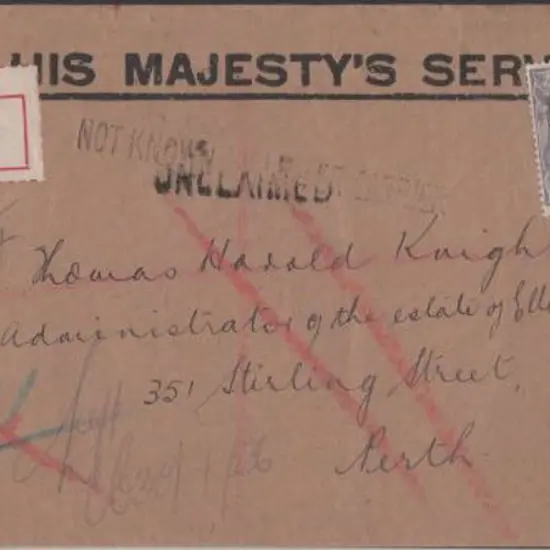 HIS MAJESTY'S SERV
NOT KNOWN
UNCLAIMED
Thomas Harold Knigh
Administrator of the estate of Elle
351 Stirling Street,
Perth